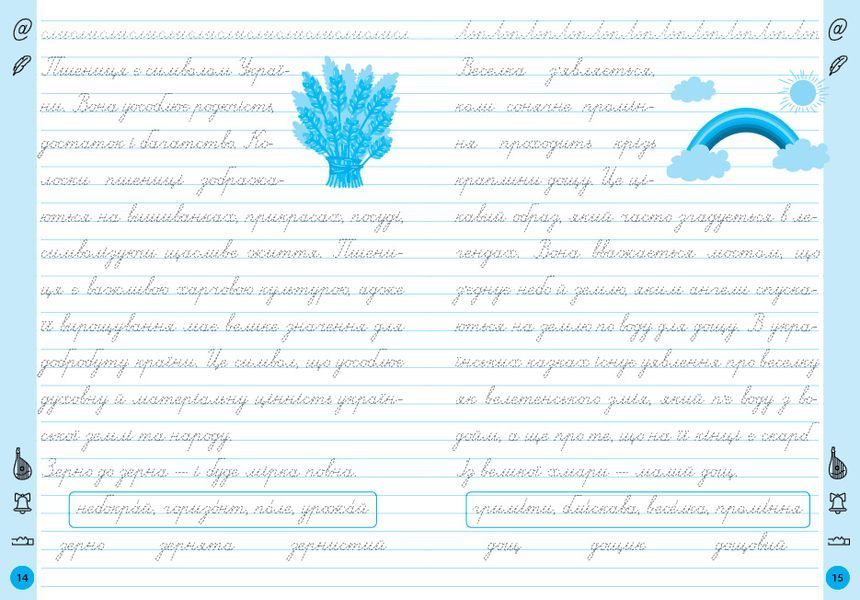 Пшениця є символом Украї-
ни. Вона уособлює родючість,
достаток і багатство. Ко-
лоски пшениці зобража-
ються на вишиванках, прикрасах, посуді,
символізуючи щасливе життя. Пшени-
ця є важливою харчовою культурою, адже
її вирощування має велике значення для
добробуту країни. Це символ, що уособлює
духовну й матеріальну цінність україн-
ської землі та народу.
Зерно до зерна — і буде мірка повна.
небокра́й, горизо́нт, по́ле, урожа́й
зерно зернята зернистий
14
Веселка з'являється,
коли сонячне промін-
ня проходить крізь
краплини дощу. Це ці-
кавий образ, який часто згадується в ле-
гендах. Вона вважається мостом, що
з'єднує небо й землю, яким ангели спуска-
ються на землю по воду для дощу. В укра-
їнських казках існує уявлення про веселку
як велетенського змія, який п'є воду з во-
дойм, а ще про те, що на її кінці є скарб.
Із великої хмари — малий дощ.
гримі́ти, бли́скава, весе́лка, промі́ння
дощ дощик дощовий
15